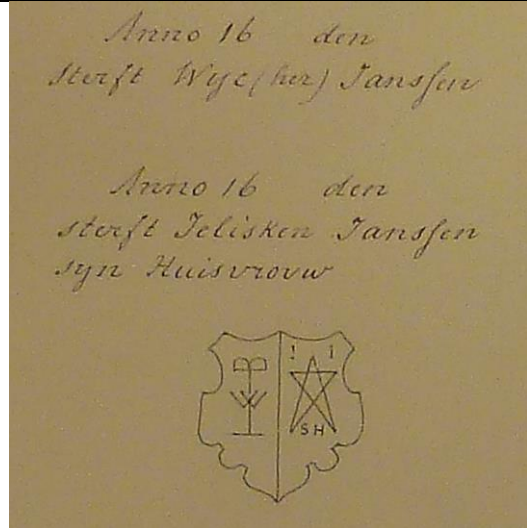 Anno 16 den
sterft Wyc(her) Jansſen
Anno 16 den
sterft Jelisken Jansſen
syn Huisvrouw
! i
SH